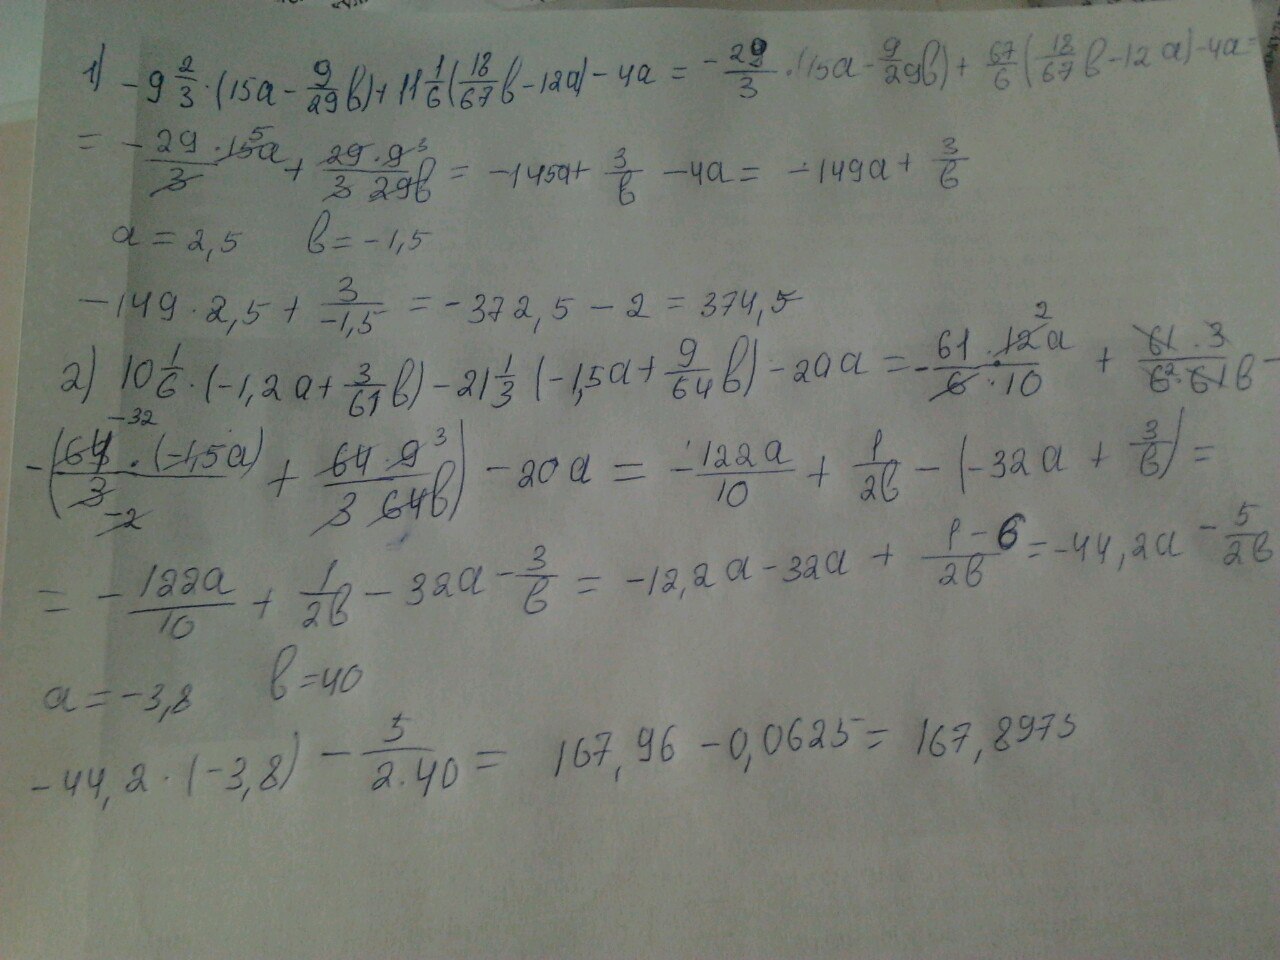 1) -9 2/3 · (15a - 9/29 b) + 11 1/6 (18/67 b - 12a) - 4a = -29/3 · (15a - 9/29 b) + 67/6 (18/67 b - 12a) - 4a =
= - 29 · 15 5 a / 3 + 29 · 9 3 / 3 29b = -145a + 3/b - 4a = -149a + 3/b
a = 2,5 b = -1,5
-149 · 2,5 + 3/-1,5 = -372,5 - 2 = 374,5
2) 10 1/6 · (-1,2a + 3/61 b) - 21 1/3 (-1,5a + 9/64 b) - 20a = - 61 · 12 2 a / 6 · 10 + 61 · 3 / 6 2 · 61b -
- (64 -32 · (-1,5a) / 3 -2 + 64 · 9 3 / 3 64b) - 20a = - 122a/10 + 1/2b - (-32a + 3/b) =
= - 122a/10 + 1/2b - 32a - 3/b = -12,2a - 32a + 1-6/2b = -44,2a - 5/2b
a = -3,8 b = 40
-44,2 · (-3,8) - 5/2·40 = 167,96 - 0,0625 = 167,8975